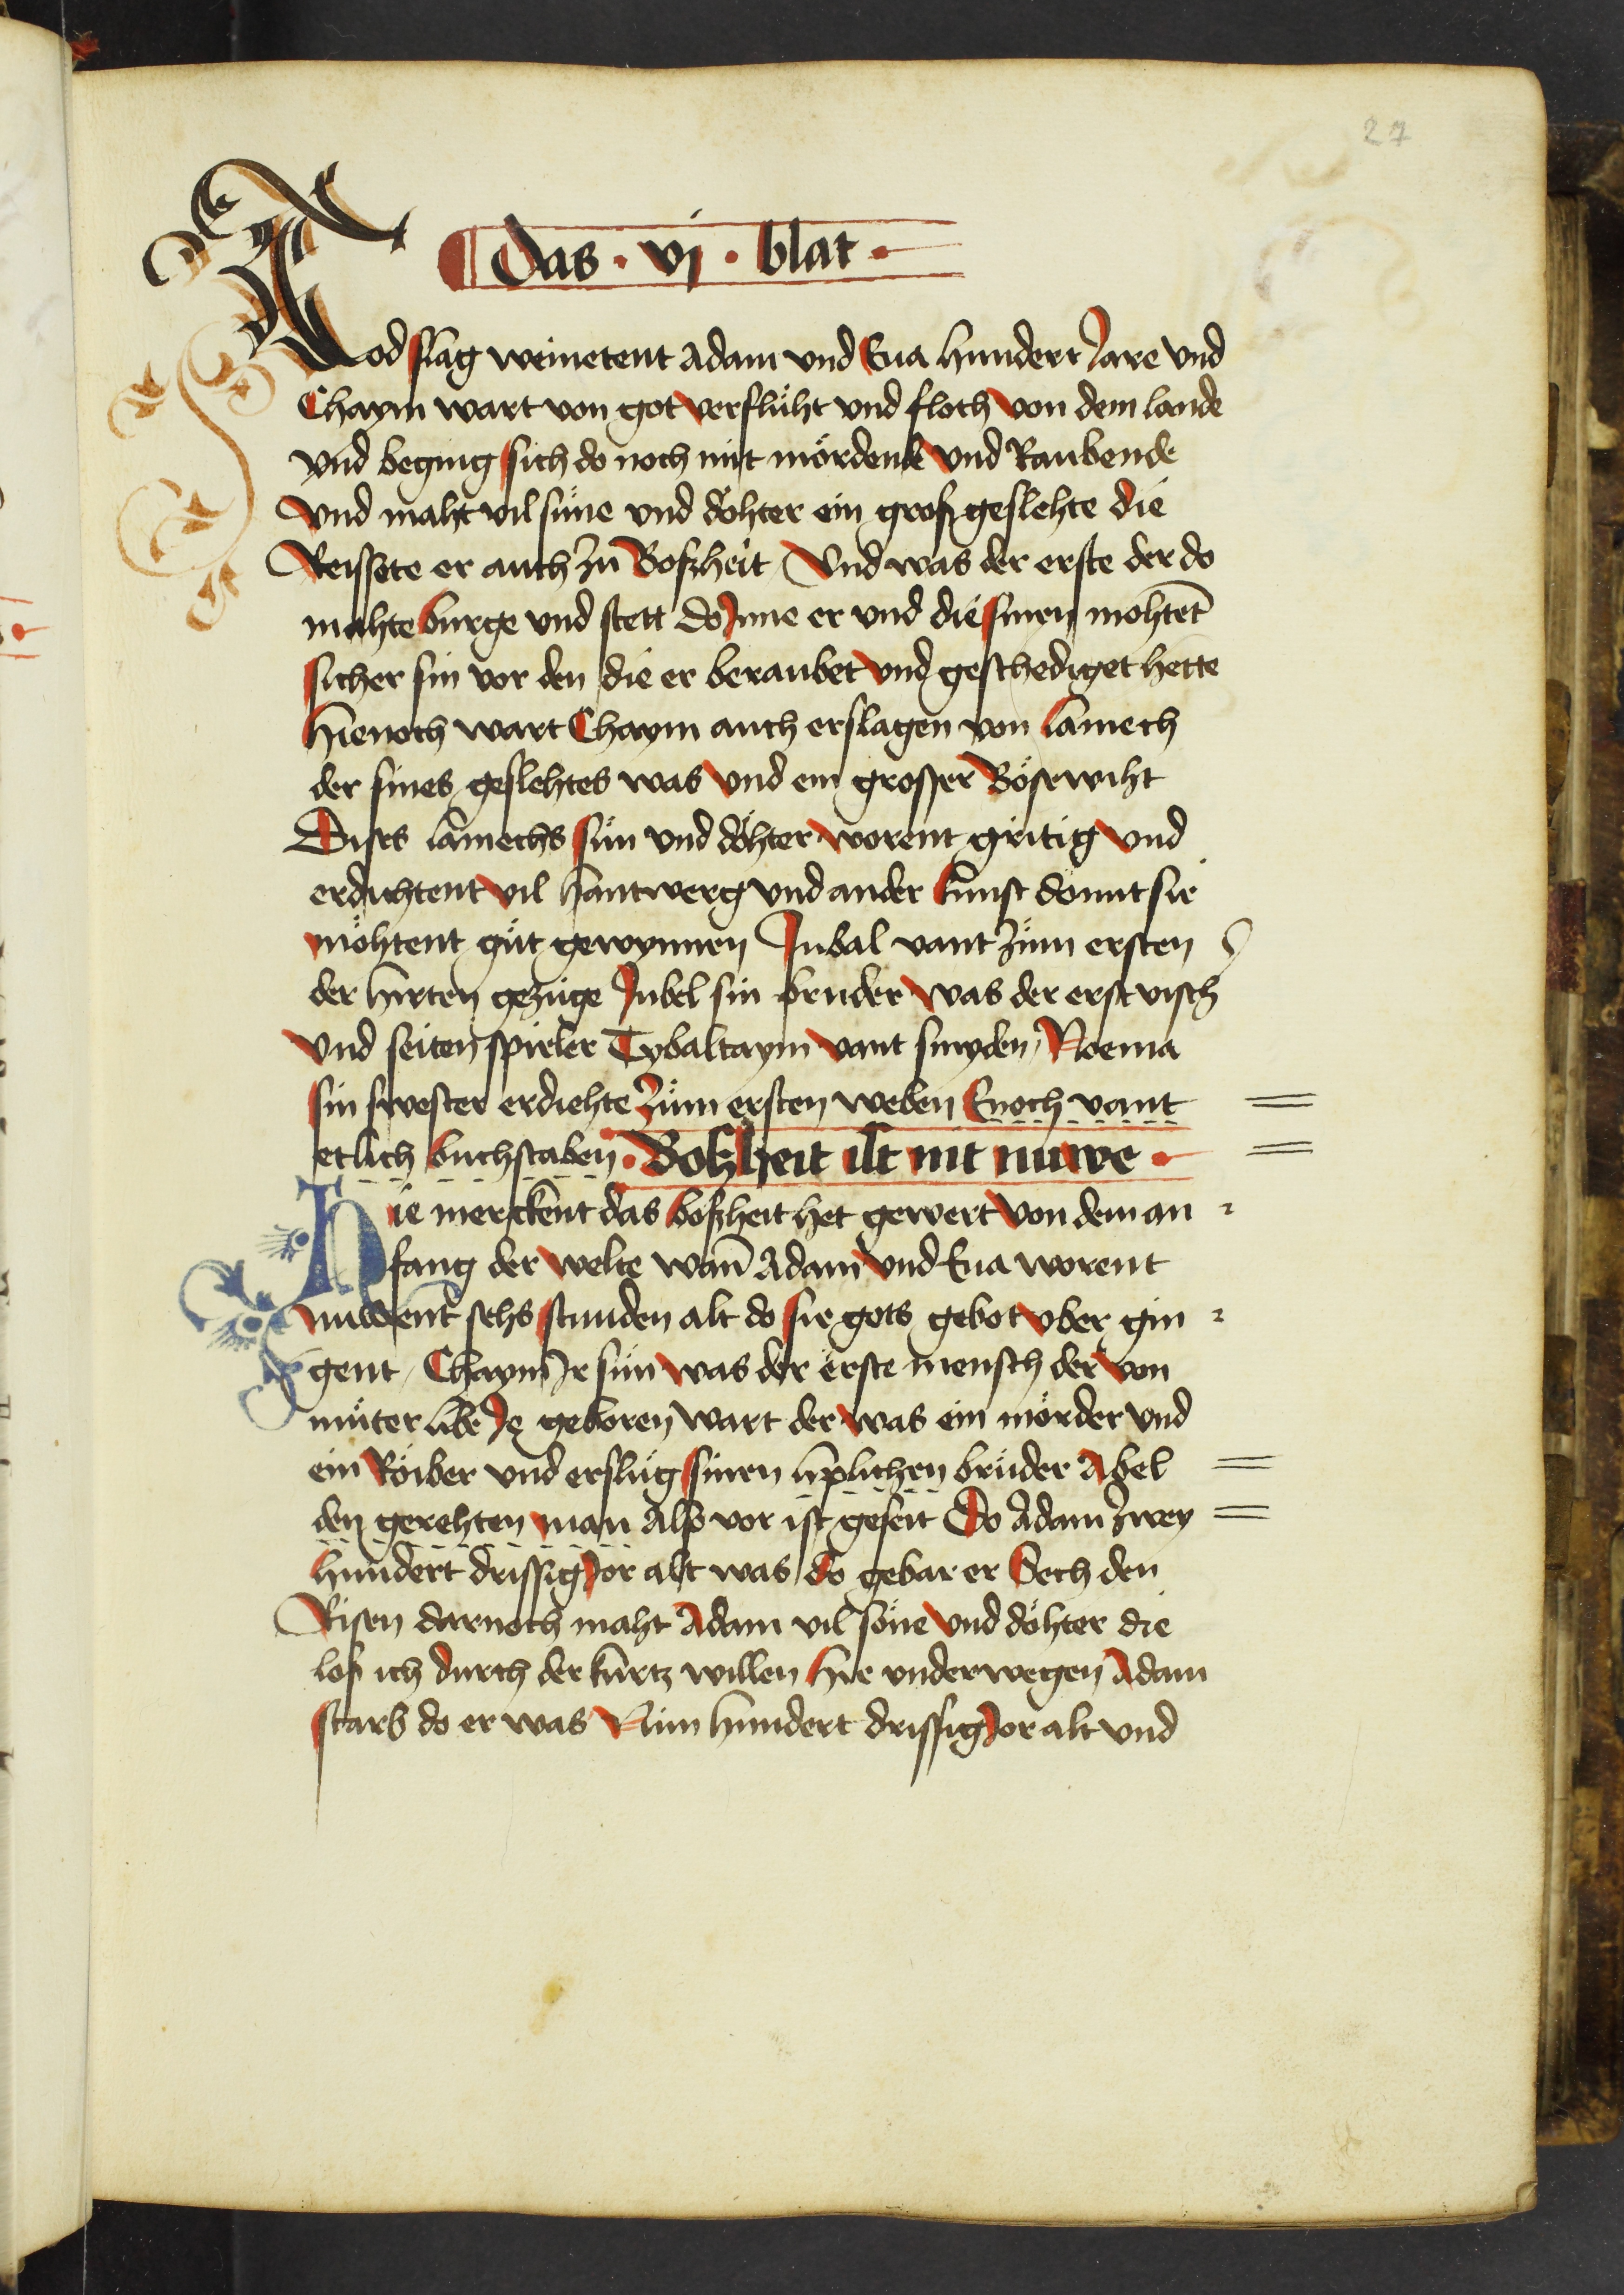 27
das · vj · blat ·
Todslag weinetent Adam vnd Eua hundert Jare vnd
Chaym wart von got verflüht vnd floch von dem lande
vnd beging sich do noch mit mördende vnd Raubende
vnd maht vil süne vnd döhter ein groß geslehte die
Reissete er auch zü Boßheit / Vnd was der erste der do
mahte burge vnd stett do Jnne er vnd die sinen mohtēt
sicher sin vor den die er beraubet vnd geschediget hette
hienoch wart Chaym auch erslagen von lamech
der sines geslehtes was vnd ein grosser Bösewiht
Dises lamechs sün vnd döhter worent gritig vnd
erdichtent vil hantwerg vnd ander kunst domit sie
möhtent güt gewynnen Jubal vant züm ersten
der hirten gezüge Jubel sin bruder was der erst visch
vnd seiten spieler Tybaltaym vant smyden / Noema
sin swester erdiehte züm ersten weben Enoch vant
etlich buchstaben · Boßheit ist nit nuwe ·
Hie merckent das boßheit het gewert von dem an
fang der welte wañ Adam vnd Eua worent
nuwent sehs stunden alt do sie gots gebot vber gin
gent / Chaym Jr sün was der erste mensch der von
müter libe Je geboren wart der was ein mörder vnd
ein Röiber vnd erslüg sinen liplichen brüder Abel
den gerehten man Alß vor ist geseit Do Adam zwey
hundert drissig Jor alt was do gebar er Sech den
Risen darnoch maht Adam vil söne vnd döhter die
loß ich durch der kürtz willen hie vnderwegen Adam
starb do er was Nün hundert drissig Jor alt vnd